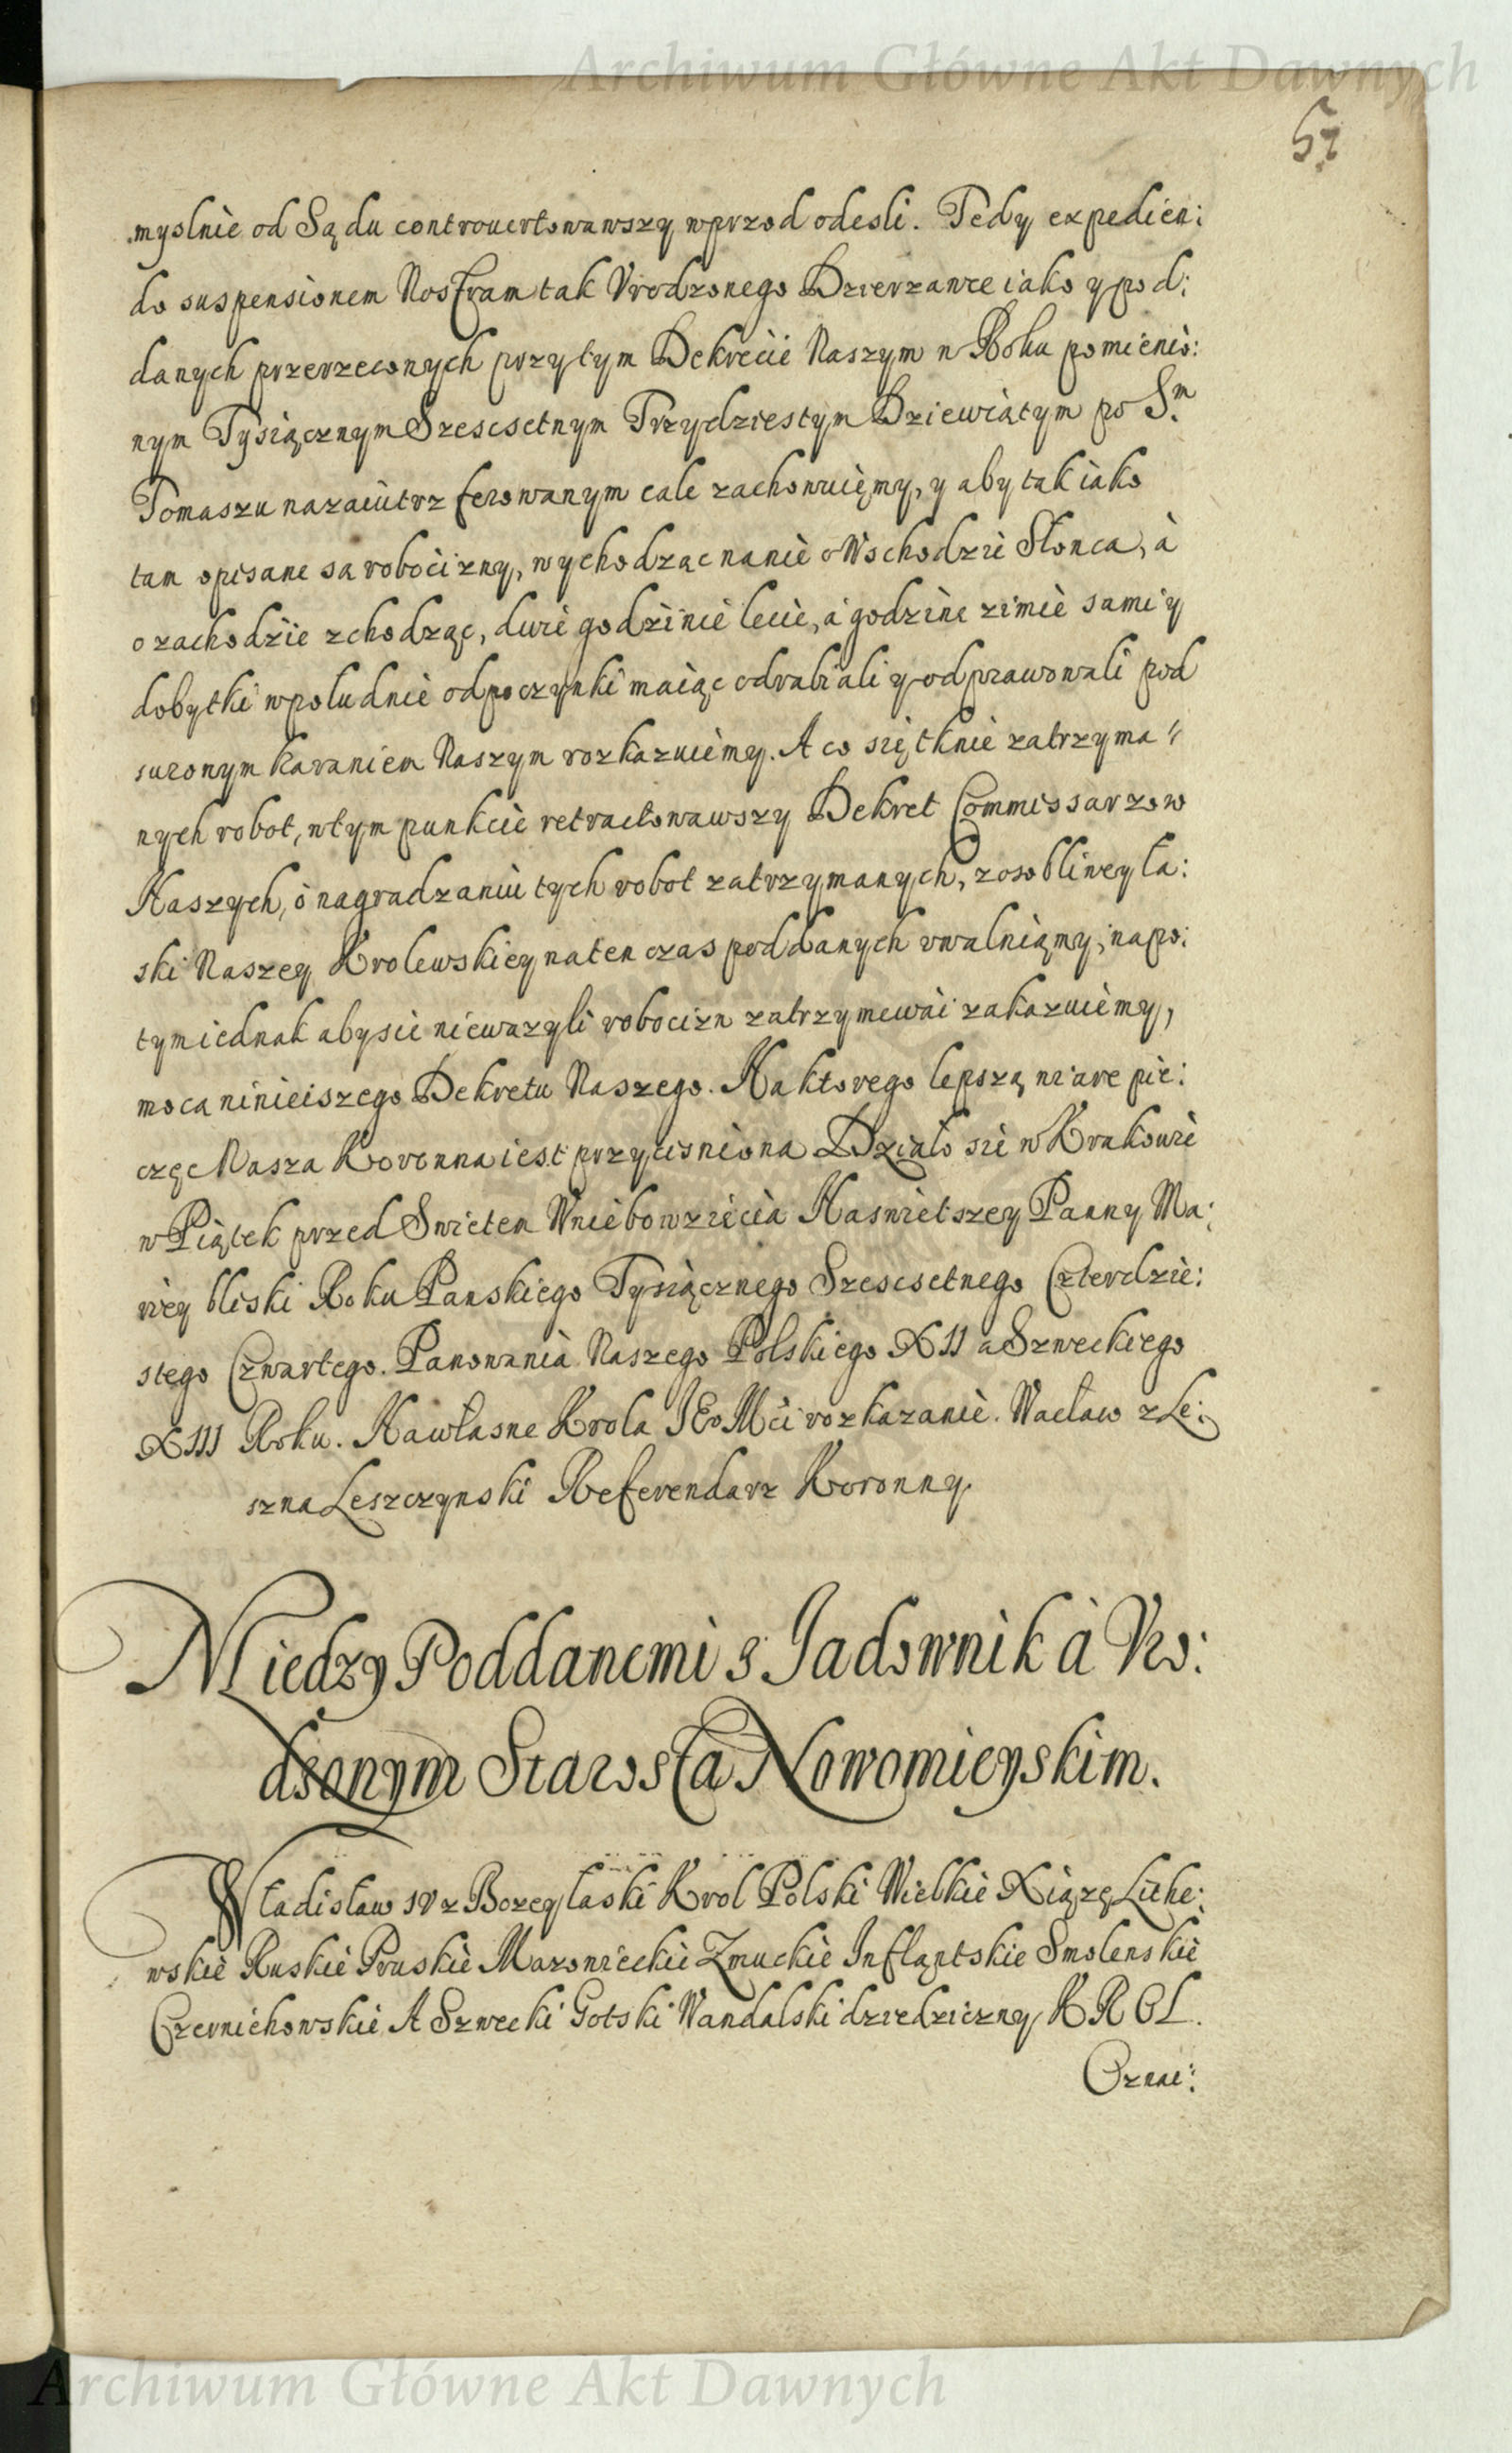 Archiwum Główne Akt Dawnych
57
myslnie od Sądu controuertowawszy wprzod odesli. Tedy expedien:
do suspensionem Nostram tak Vrodzonego Dzierzawce iako y pod:
danych przerzeczonych przy tym Dekrecie Naszym w Roku pomienio:
nym Tysiącznym Szescsetnym Trzydziestym Dziewiątym po S.m
Tomaszu nazaiutrz ferowanym cale zachowuięmy, y aby tak iako
tam opisane sa robocizny, wychodząc nanie o Wschodzie Słonca, à
o zachodzie zchodząc, dwie godzinie lecie, a godzine zimie sami y
dobytki wpoludnie odpoczynki maiąc odrabiali y odprawowali pod
surowym karaniem Naszym rozkazuiemy. A co się tknie zatrzyma"
nych robot, wtym punkcie retractowawszy Dekret Commissarzow
Naszych, o nagradzaniu tych robot zatrzymanych, zosobliwey ła:
ski Naszey Krolewskiey naten czas poddanych vwalniąmy, napo:
tym iednak aby sie niewazyli robocizn zatrzymewai zakazuiemy,
moca ninieiszego Dekretu Naszego. Na ktorego lepszą wiare pie:
częc Nasza Koronna iest przycisniona Działo sie w Krakowie
w Piątek przed Swietem Wniebowzięcia Naswietszey Panny Ma:
riey bliski Roku Panskiego Tysiącznego Szescsetnego Czterdzie:
stego Czwartego. Panowania Naszego Polskiego XII a Szweckiego
XIII Roku. Nawłasne Krola JEo Mći rozkazanie. Wacław z Le:
szna Leszczynski Referendarz Koronny.
Miedzy Poddanemi s Jadownik à Vro:
dzonym Starosta Nowomieyskim.
Władisław IV z Bozey łaski Krol Polski Wielkie Xiążę Lithe:
wskie Ruskie Pruskie Mazowieckie Zmuckie Inflantskie Smolenskie
Czernichowskie A Szwecki Gotski Wandalski dziedziczny KROL.
Oznai:
Archiwum Główne Akt Dawnych